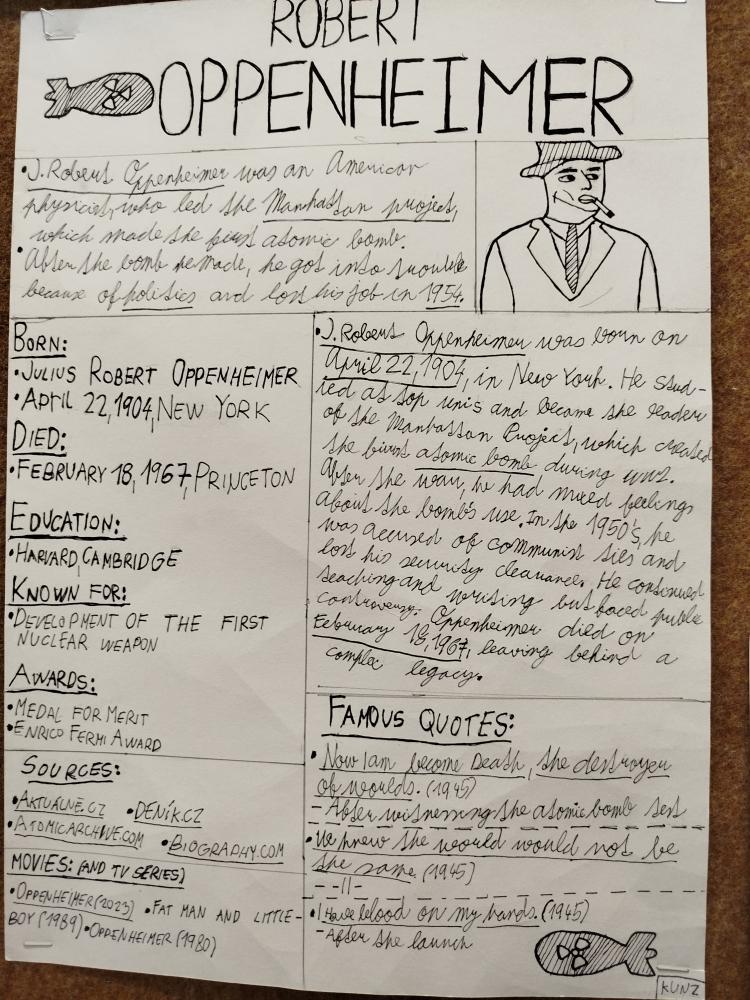 ROBERT
OPPENHEIMER
•J. Robert Oppenheimer was an American
physicist, who led the Manhattan project,
which made the first atomic bomb.
•After the bomb he made, he got into trouble
because of politics and lost his job in 1954.
BORN:
•JULIUS ROBERT OPPENHEIMER
•APRIL 22, 1904, NEW YORK
DIED:
•FEBRUARY 18, 1967, PRINCETON
EDUCATION:
•HARVARD, CAMBRIDGE
KNOWN FOR:
•DEVELOPMENT OF THE FIRST
NUCLEAR WEAPON
AWARDS:
•MEDAL FOR MERIT
•ENRICO FERMI AWARD
SOURCES:
•AKTUÁLNĚ.CZ •DENÍK.CZ
•ATOMICARCHIVE.COM •BIOGRAPHY.COM
MOVIES: (AND TV SERIES)
•OPPENHEIMER (2023) •FAT MAN AND LITTLE-
BOY (1989) •OPPENHEIMER (1980)
•J. Robert Oppenheimer was born on
April 22, 1904, in New York. He stud-
ied at top unis and became the leader
of the Manhattan Project, which created
the first atomic bomb during WW2.
After the war, he had mixed feelings
about the bomb's use. In the 1950's, he
was accused of communist ties and
lost his security clearance. He continued
teaching and writing but faced public
controversy. Oppenheimer died on
February 18, 1967, leaving behind a
complex legacy.
FAMOUS QUOTES:
•Now I am become Death, the destroyer
of worlds. (1945)
- After witnessing the atomic bomb test
•We knew the world would not be
the same. (1945)
- -||-
•I Have blood on my hands. (1945)
- After the launch
KUNZ